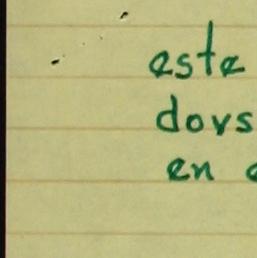 este
dors
en